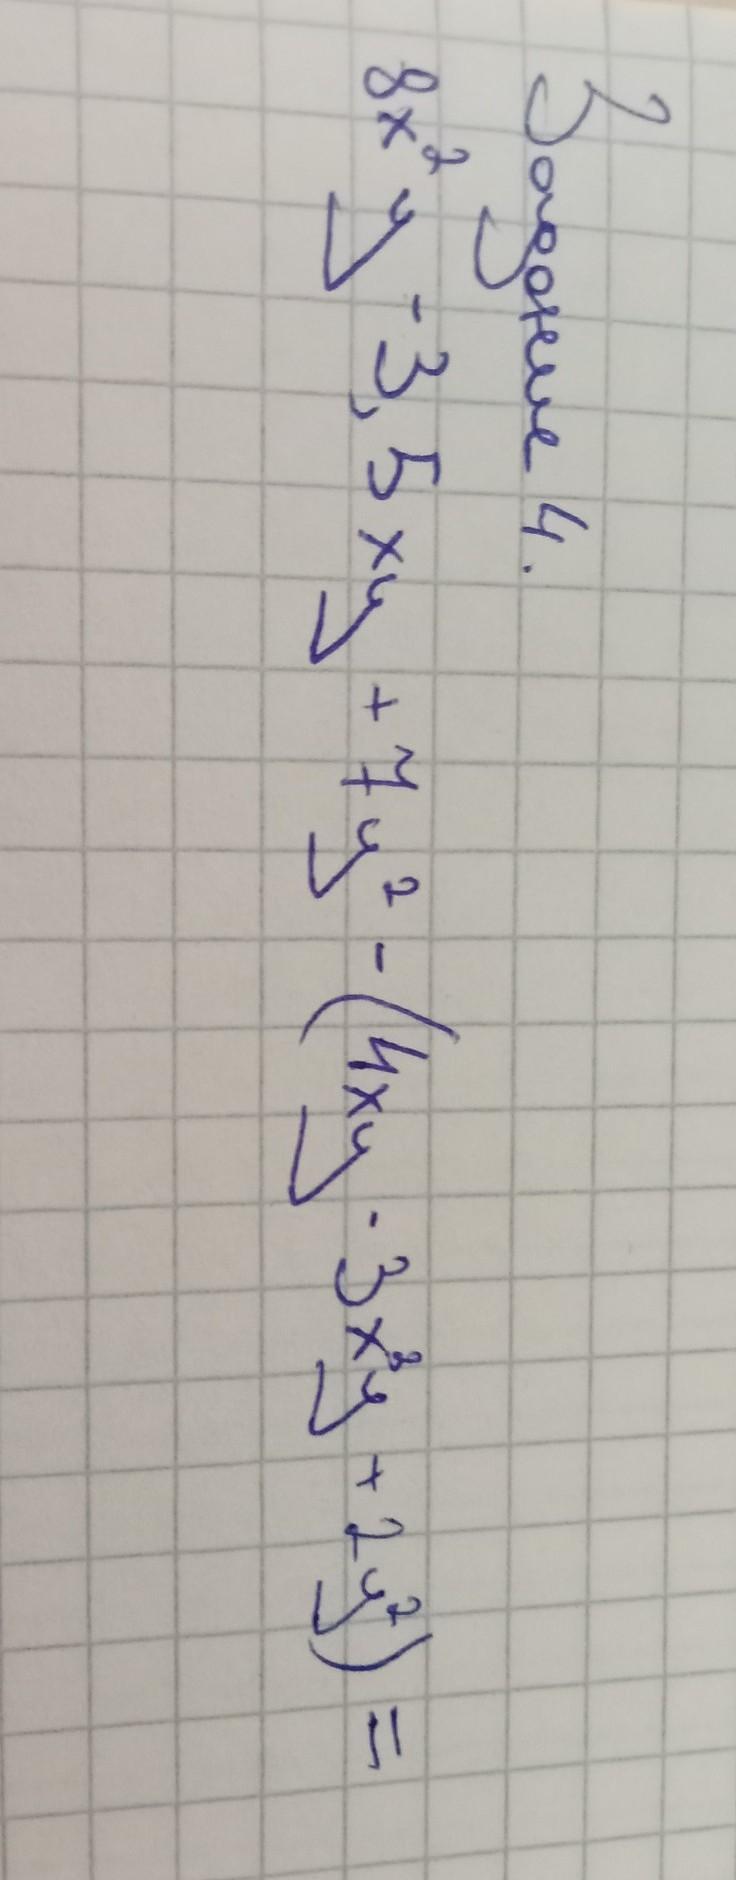 Задание 4.
8x²y - 3,5xy + 7y² - (4xy - 3x²y + 2y²) =